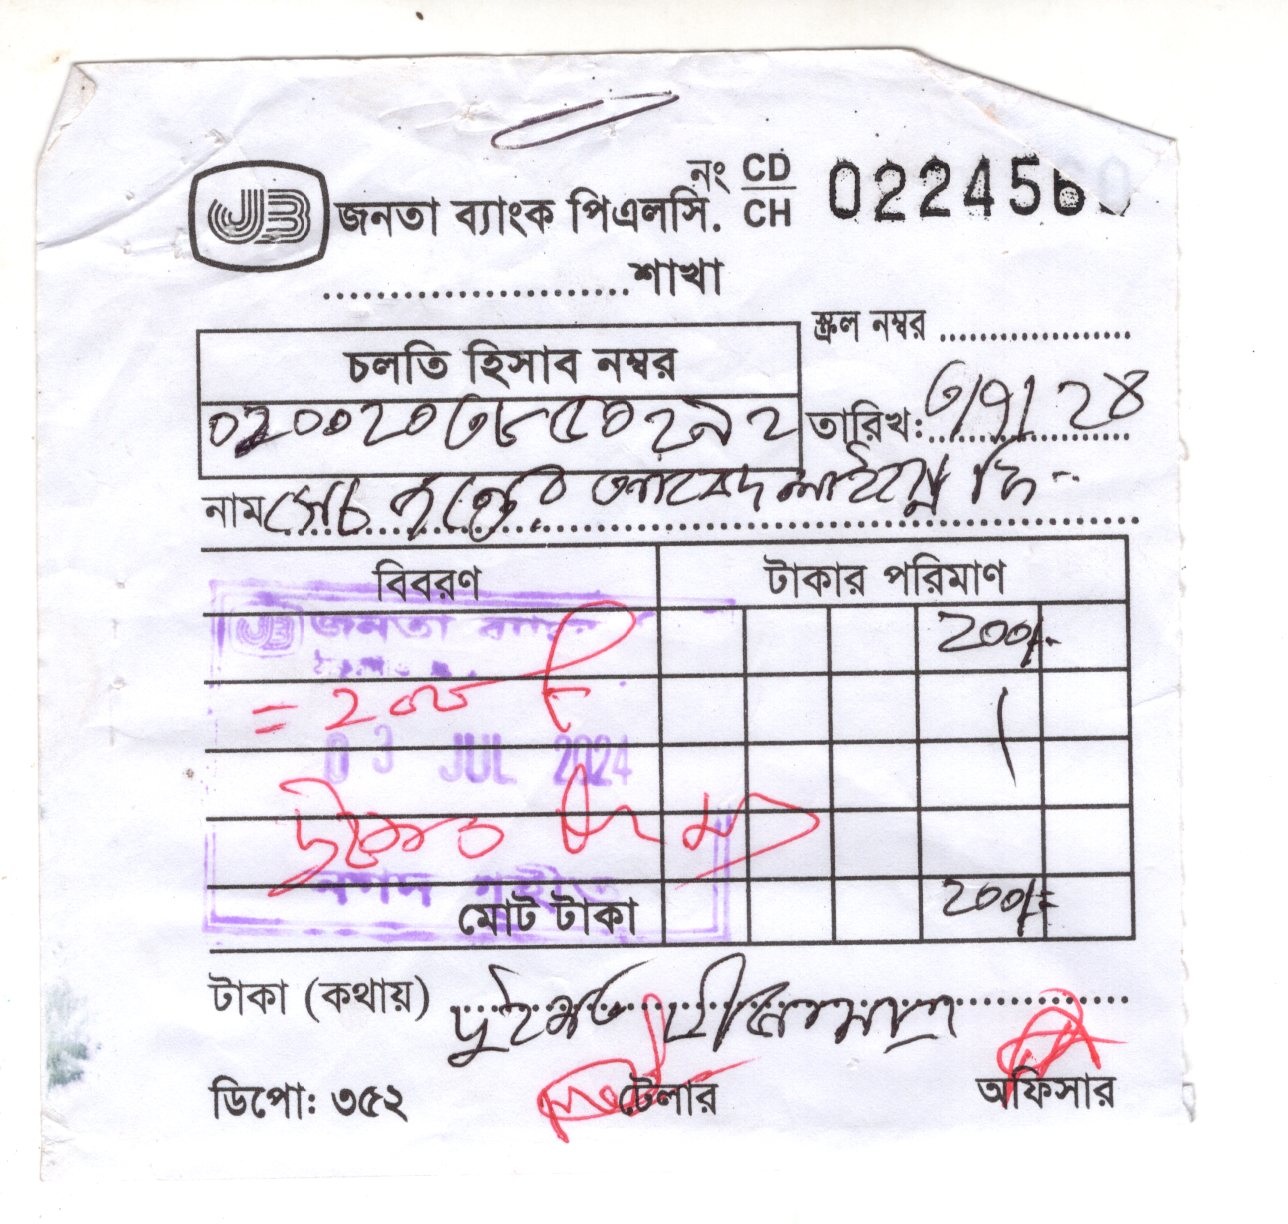 নং CD/CH 022456
JB জনতা ব্যাংক পিএলসি.
........................শাখা
স্ক্রল নম্বর ....................
চলতি হিসাব নম্বর
০২০০২০৩৮৫০২৯২
তারিখ: ৩/৭/ ২৪
নাম
বিবরণ টাকার পরিমাণ
JB জনতা ব্যাংক
২০০/-
= ২০০
03 JUL 2024
নগদ গ্রহীত
মোট টাকা ২০০/=
টাকা (কথায়) দুইশত টাকা মাত্র
ডিপো: ৩৫২ টেলার অফিসার